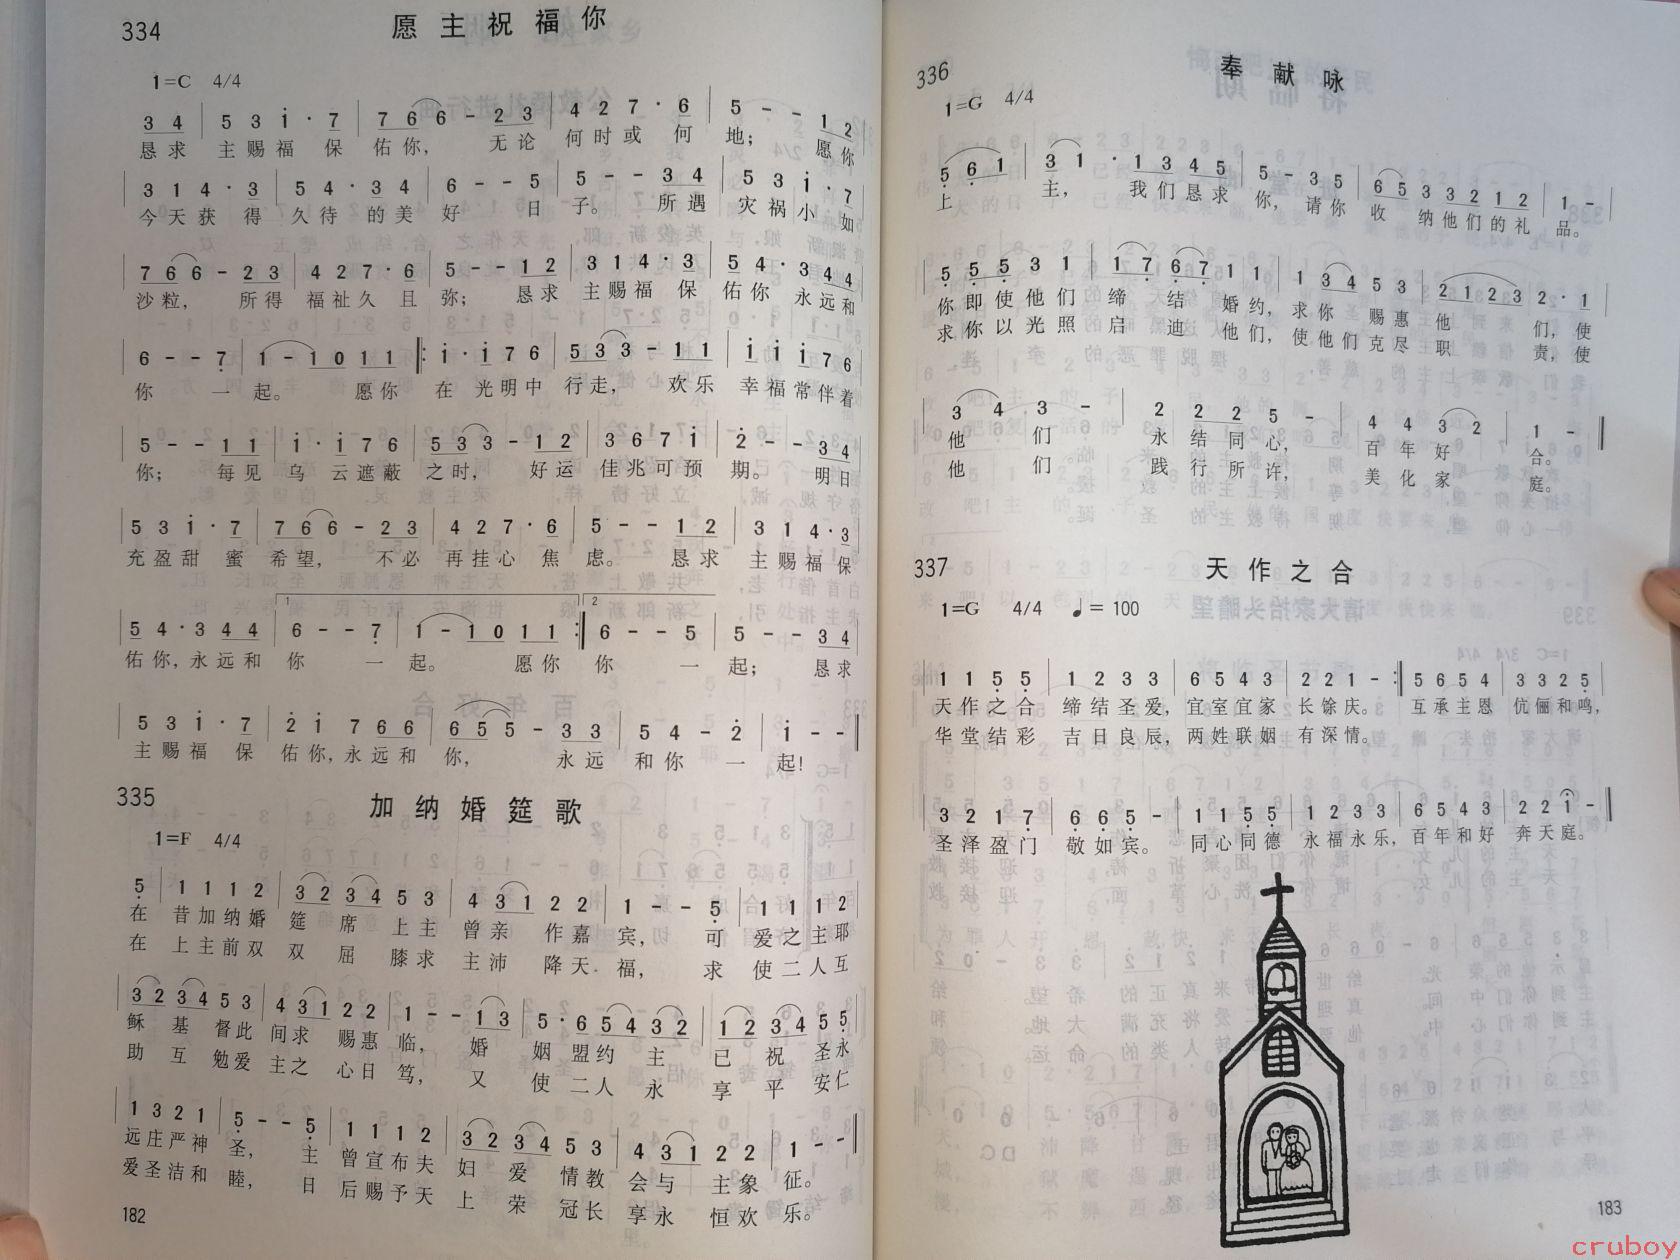 334 愿主祝福你
1=C 4/4
3 4 | 5 3 i · 7 | 7 6 6 - 2 3 | 4 2 7 · 6 | 5 - - 1 2
恳求 主赐福 保 佑你, 无论 何时或 何 地; 愿你
3 1 4 · 3 | 5 4 · 3 4 | 6 - - 5 | 5 - - 3 4 | 5 3 i · 7
今天获 得 久待 的美 好 日 子。 所遇 灾祸小 如
7 6 6 - 2 3 | 4 2 7 · 6 | 5 - - 1 2 | 3 1 4 · 3 | 5 4 · 3 4 4
沙粒, 所得 福祉久 且 弥; 恳求 主赐福 保 佑你 永远和
6 - - 7 | 1 - 1 0 1 1 :| i · i 7 6 | 5 3 3 - 1 1 | i i i 7 6
你 一 起。 愿你 在 光明中 行走, 欢乐 幸福常伴着
5 - - 1 1 | i · i 7 6 | 5 3 3 - 1 2 | 3 6 7 i | 2 - - 3 4
你; 每见 乌 云遮蔽 之时, 好运 佳兆可预 期。 明日
5 3 i · 7 | 7 6 6 - 2 3 | 4 2 7 · 6 | 5 - - 1 2 | 3 1 4 · 3
充盈甜 蜜 希望, 不必 再挂心 焦 虑。 恳求 主赐福保
5 4 · 3 4 4 | 1 6 - - 7 | 1 - 1 0 1 1 :| 2 6 - - 5 | 5 - - 3 4
佑你,永远和 你 一 起。 愿你 你 一 起; 恳求
5 3 i · 7 | 2 i 7 6 6 | 6 5 5 - 3 3 | 5 4 - 2 | i - -
主赐福 保 佑你,永远和 你, 永远 和你 一 起!
335 加纳婚筵歌
1=F 4/4
5 | 1 1 1 2 | 3 2 3 4 5 3 | 4 3 1 2 2 | 1 - - 5 | 1 1 1 2
在 昔加纳婚 筵 席 上主 曾亲 作嘉 宾, 可 爱之主耶
在 上主前双 双 屈 膝求 主沛 降天 福, 求 使二人互
3 2 3 4 5 3 | 4 3 1 2 2 | 1 - - 1 3 | 5 · 6 5 4 3 2 | 1 2 3 4 5 5
稣 基 督此 间求 赐惠 临, 婚 姻盟约 主 已 祝 圣永
助 互 勉爱 主之 心日 笃, 又 使二人 永 享 平 安仁
1 3 2 1 | 5 - - 5 | 1 1 1 2 | 3 2 3 4 5 3 | 4 3 1 2 2 | 1 - -
远庄严神 圣, 主 曾宣布夫 妇 爱 情教 会与 主象 征。
爱圣洁和 睦, 日 后赐予天 上 荣 冠长 享永 恒欢 乐。
182
336 奉献咏
1=G 4/4
5 6 1 | 3 1 · 1 3 4 5 | 5 - 3 5 | 6 5 3 3 2 1 2 | 1 -
上 主, 我们恳求 你, 请你 收 纳他们的礼 品。
5 5 5 3 1 | 1 7 6 7 1 1 | 1 3 4 5 3 | 2 1 2 3 2 · 1
你即使他们 缔 结 婚约, 求你 赐惠 他 们, 使
求你以光照 启 迪 他们, 使他们克尽 职 责, 使
3 4 3 - | 2 2 2 5 - | 4 4 3 2 | 1 -
他 们 永 结 同 心, 百 年 好 合。
他 们 践 行 所 许, 美 化 家 庭。
337 天作之合
1=G 4/4 ♩=100
1 1 5 5 | 1 2 3 3 | 6 5 4 3 | 2 2 1 - :| 5 6 5 4 | 3 3 2 5
天作之合 缔结圣爱,宜室宜家 长馀庆。 互承主恩 伉俪和鸣,
华堂结彩 吉日良辰,两姓联姻 有深情。
3 2 1 7 | 6 6 5 - | 1 1 5 5 | 1 2 3 3 | 6 5 4 3 | 2 2 1 -
圣泽盈门 敬如宾。 同心同德 永福永乐,百年和好 奔天庭。
183
cruboy